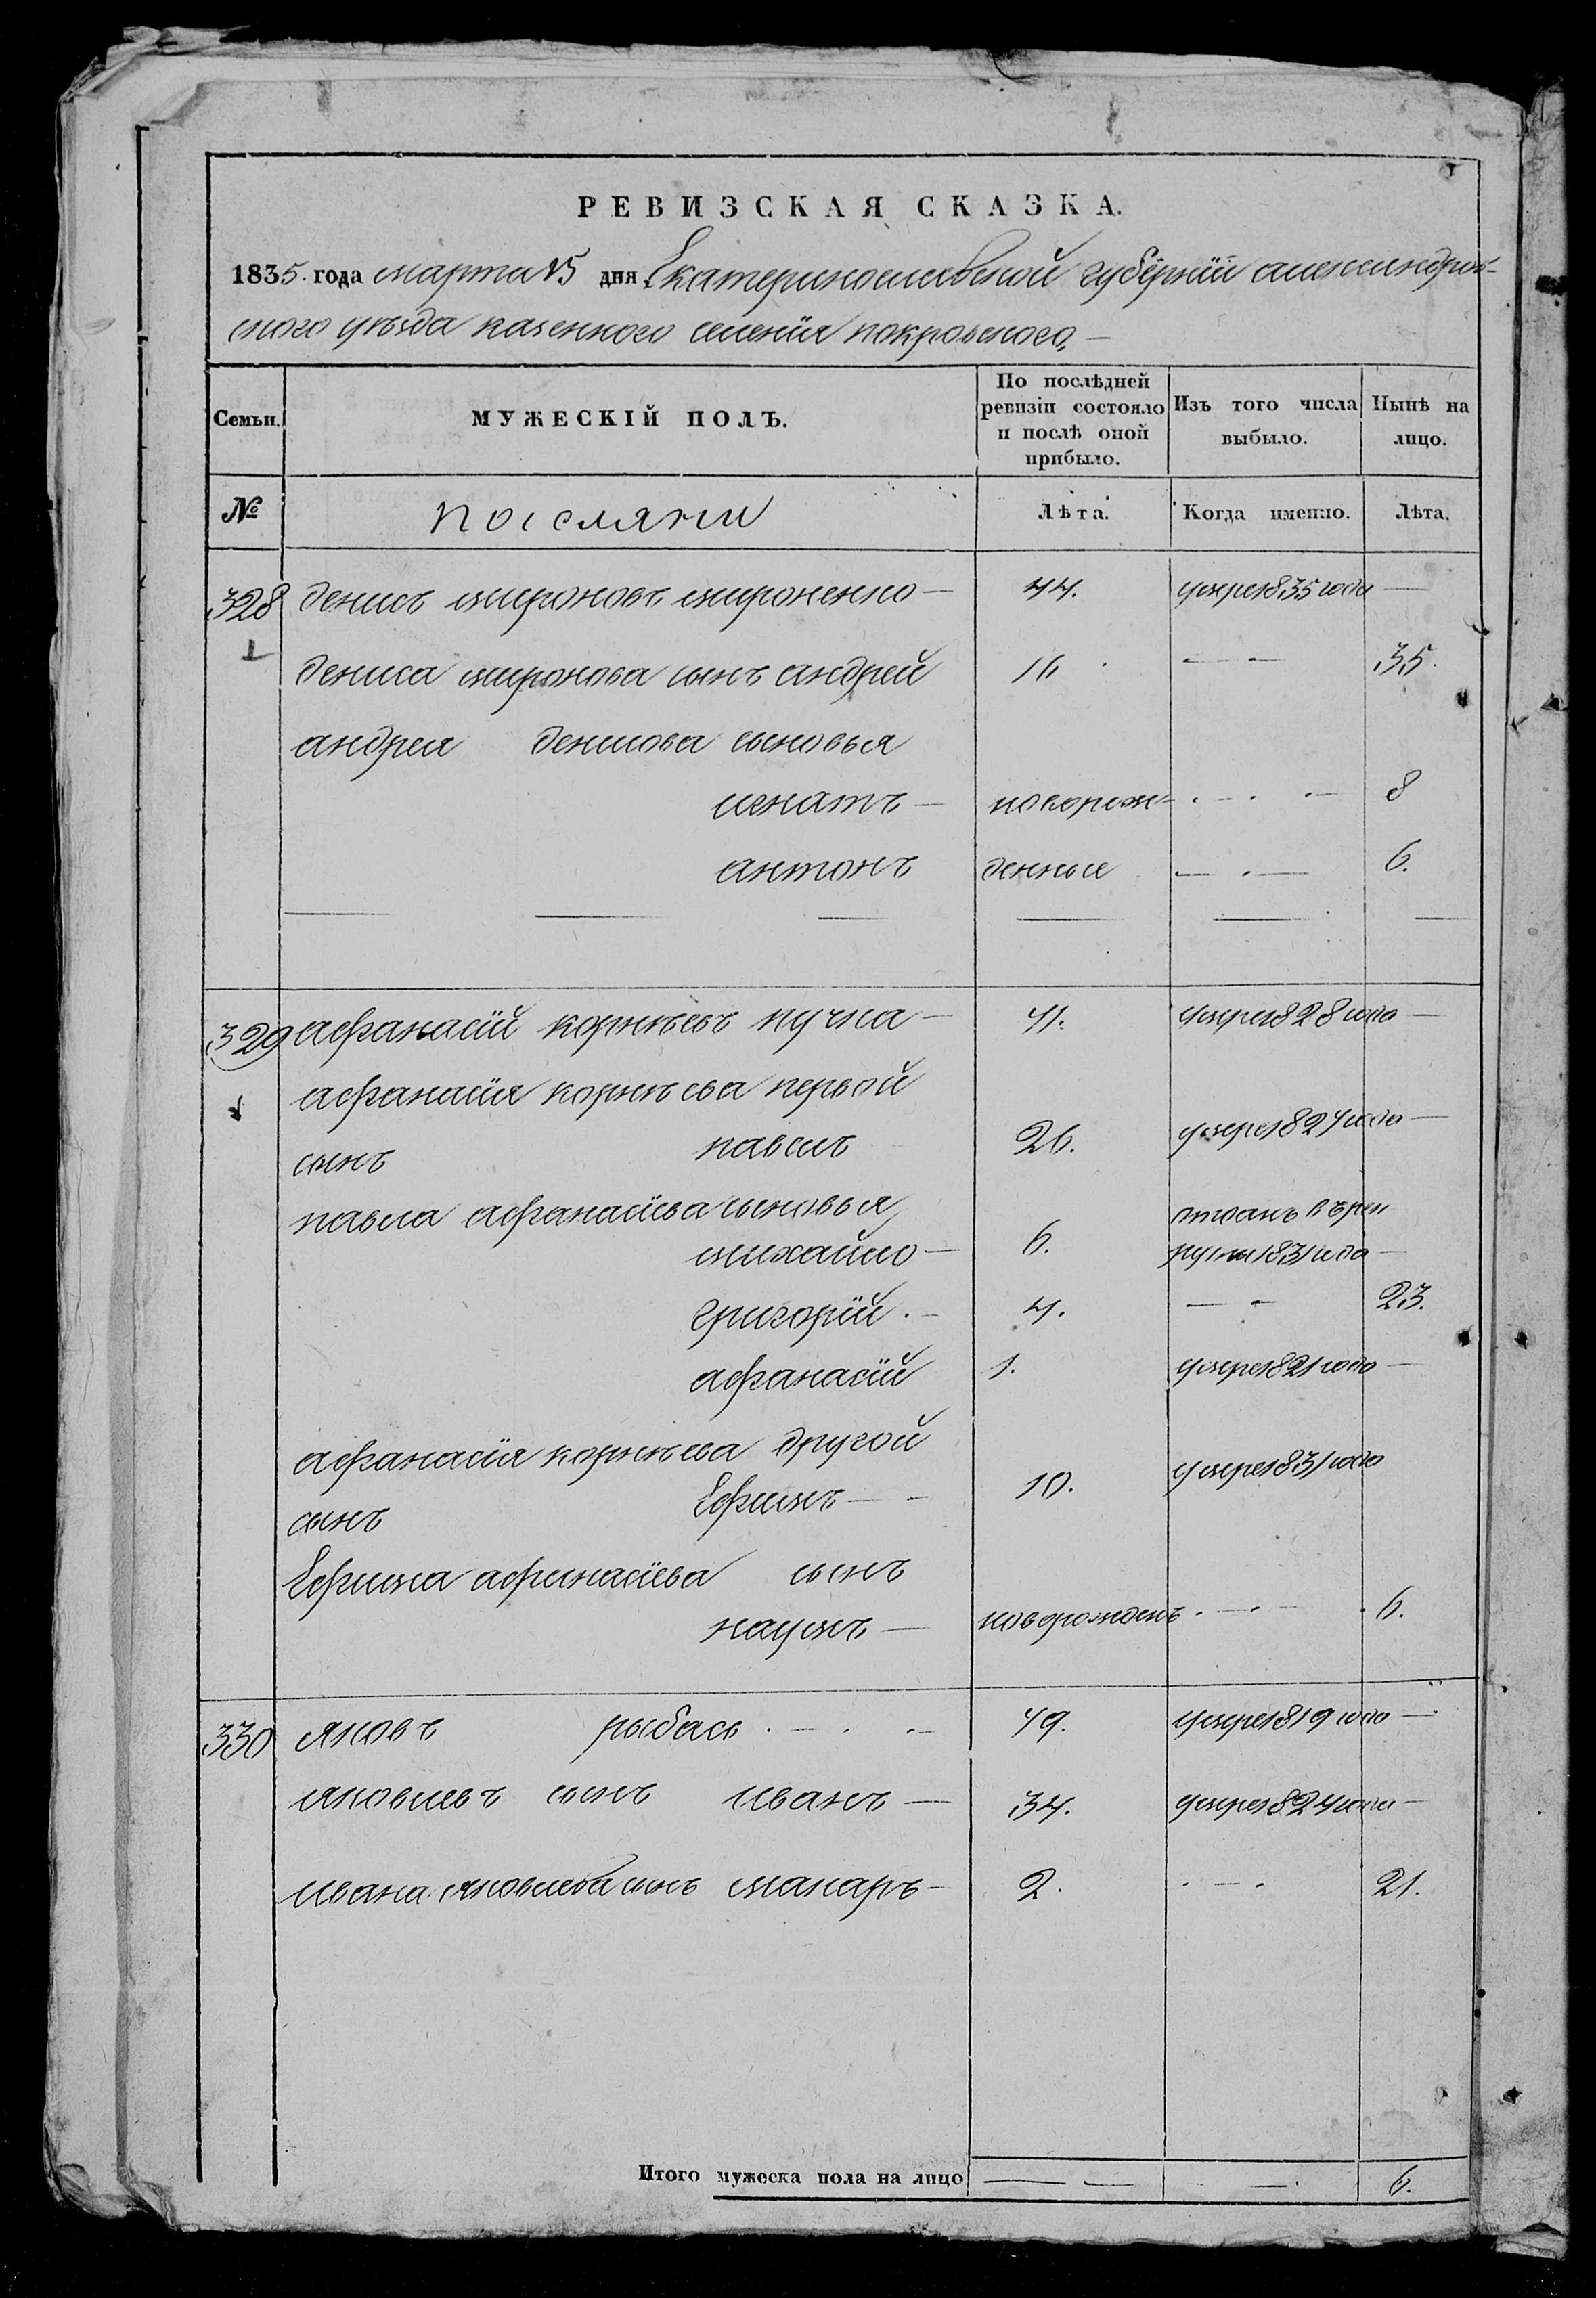 РЕВИЗСКАЯ СКАЗКА.
1835. года марта 15 дня Екатеринославской губернїи александров-
ского уѣзда казенного селенїя покровского,
Семьи. МУЖЕСКІЙ ПОЛЪ. По послѣдней ревизіи состояло и послѣ оной прибыло. Изъ того числа выбыло. Нынѣ на лицо.
№ поселяни Лѣта. Когда именно. Лѣта.
328 денисъ мироновъ мироненко — 44. умер 1835 года —
дениса миронова сынъ андрей 16 — — 35.
андрея денисова сыновья
игнатъ — новорож- 8
антонъ денные 6.
329 афанасїй корнѣевъ пучка — 41. умер 1828 года —
афанасїя корнѣева первой
сынъ павелъ 26. умер 1824 года —
павла афанасїева сыновья
отданъ в рек
михайло — 6. руты 1831 года —
григорїй. — 4. — — 23.
афанасїй 1. умер 1821 года —
афанасїя корнѣева другой
сынъ Ефимъ — - 10. умер 1831 года
Ефима афанасїева сынъ
наумъ — новорожденъ 6.
330 яковъ рыбась 49. умер 1819 года —
яковлевъ сынъ иванъ — 34. умер 1824 года —
ивана яковлева сынъ макаръ — 2. 21.
Итого мужеска пола на лицо — — — 6.